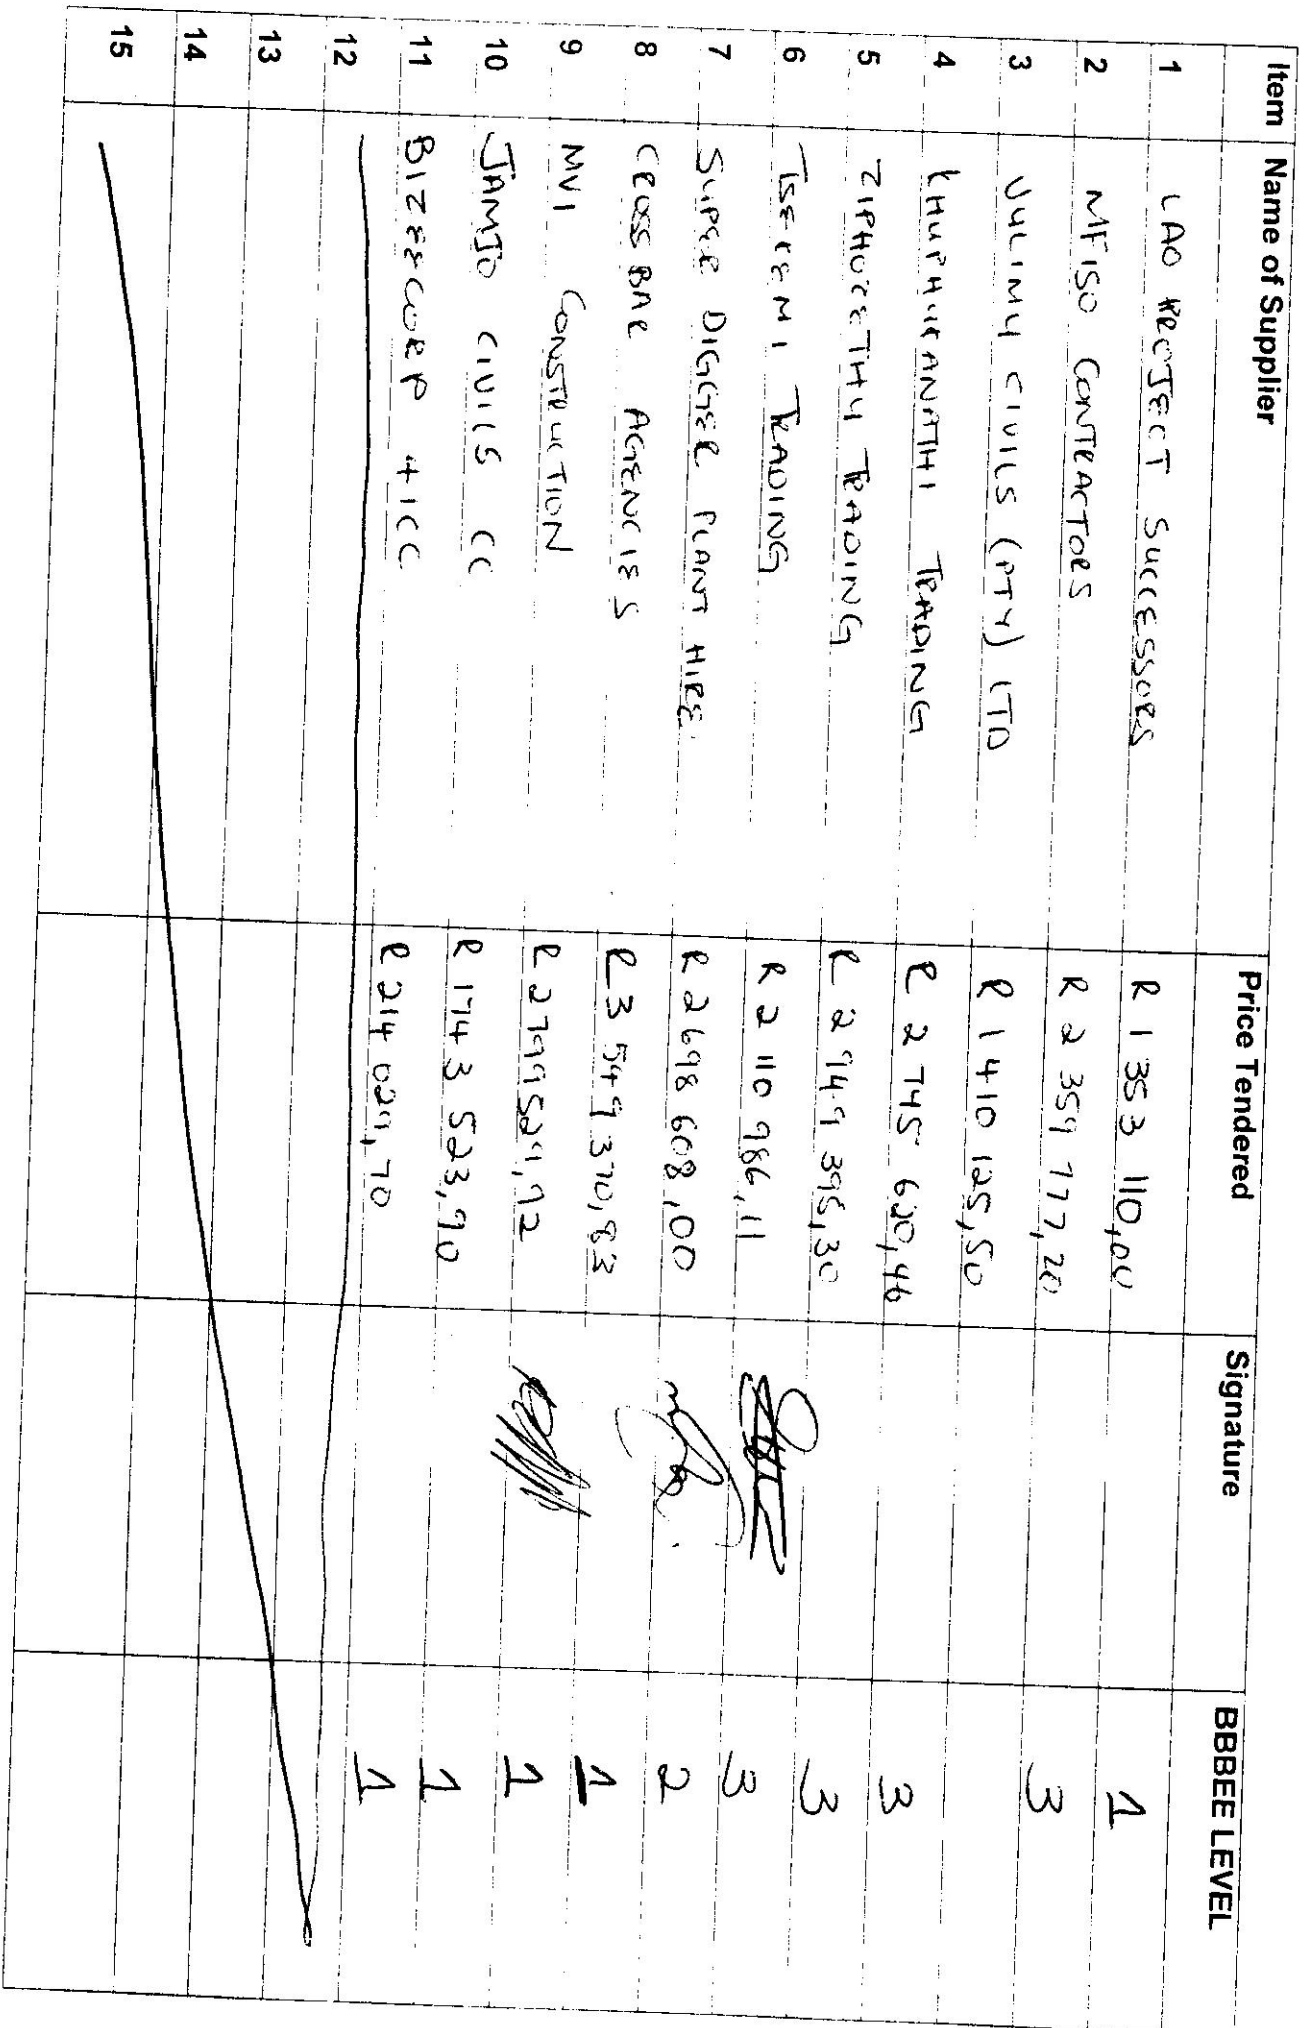 Item Name of Supplier Price Tendered Signature BBBEE LEVEL
1 LAO PROJECT SUCCESSORS R 1 353 110,00 1
2 MFISO CONTRACTORS R 2 359 977,20 3
3 VULIMU CIVILS (PTY) LTD R 1 410 125,50
4 KHUPHUKANATHI TRADING R 2 745 620,46 3
5 ZIPHOZETHU TRADING R 2 949 395,30 3
6 TSEKEMI TRADING R 2 110 986,11 3
7 SUPER DIGGER PLANT HIRE R 2 698 608,00 2
8 CROSSBAR AGENCIES R 3 549 370,83 1
9 MVI CONSTRUCTION R 2799529,92 1
10 JAMJO CIVILS CC R 1743 523,90 1
11 BIZEECORP 41CC R 214 029,70 1
12
13
14
15